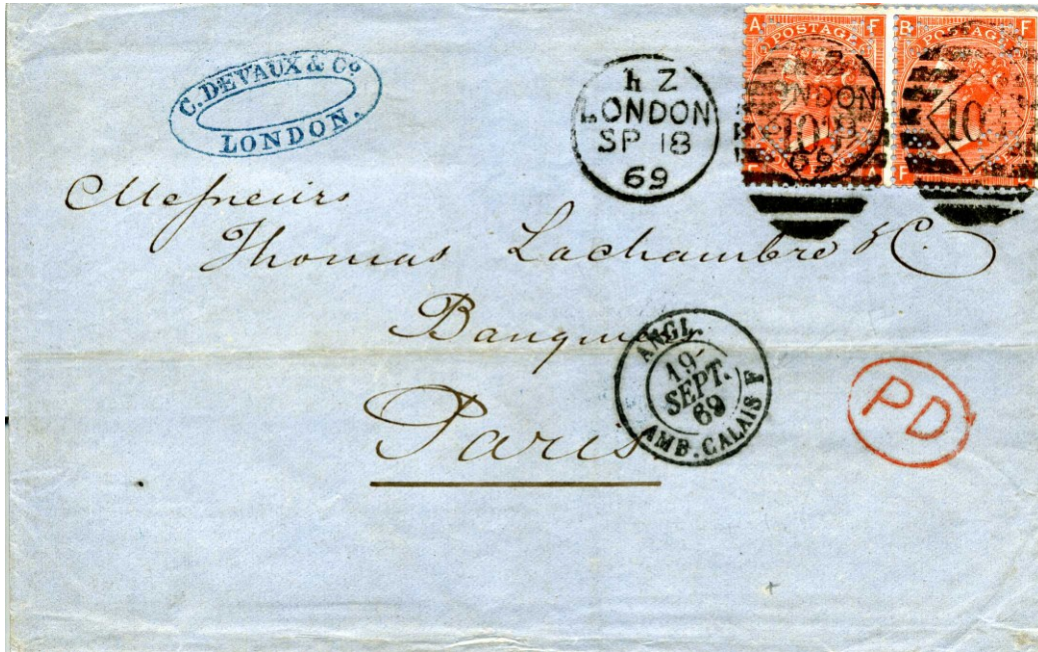 C. DEVAUX & Co
LONDON.
hZ
LONDON
SP 18
69
A F
POSTAGE
B F
POSTAGE
LONDON
69
100
Messieurs
Thomas Lachambre & C.
Banquiers
Paris
ANGL.
19
SEPT.
69
AMB. CALAIS F
PD